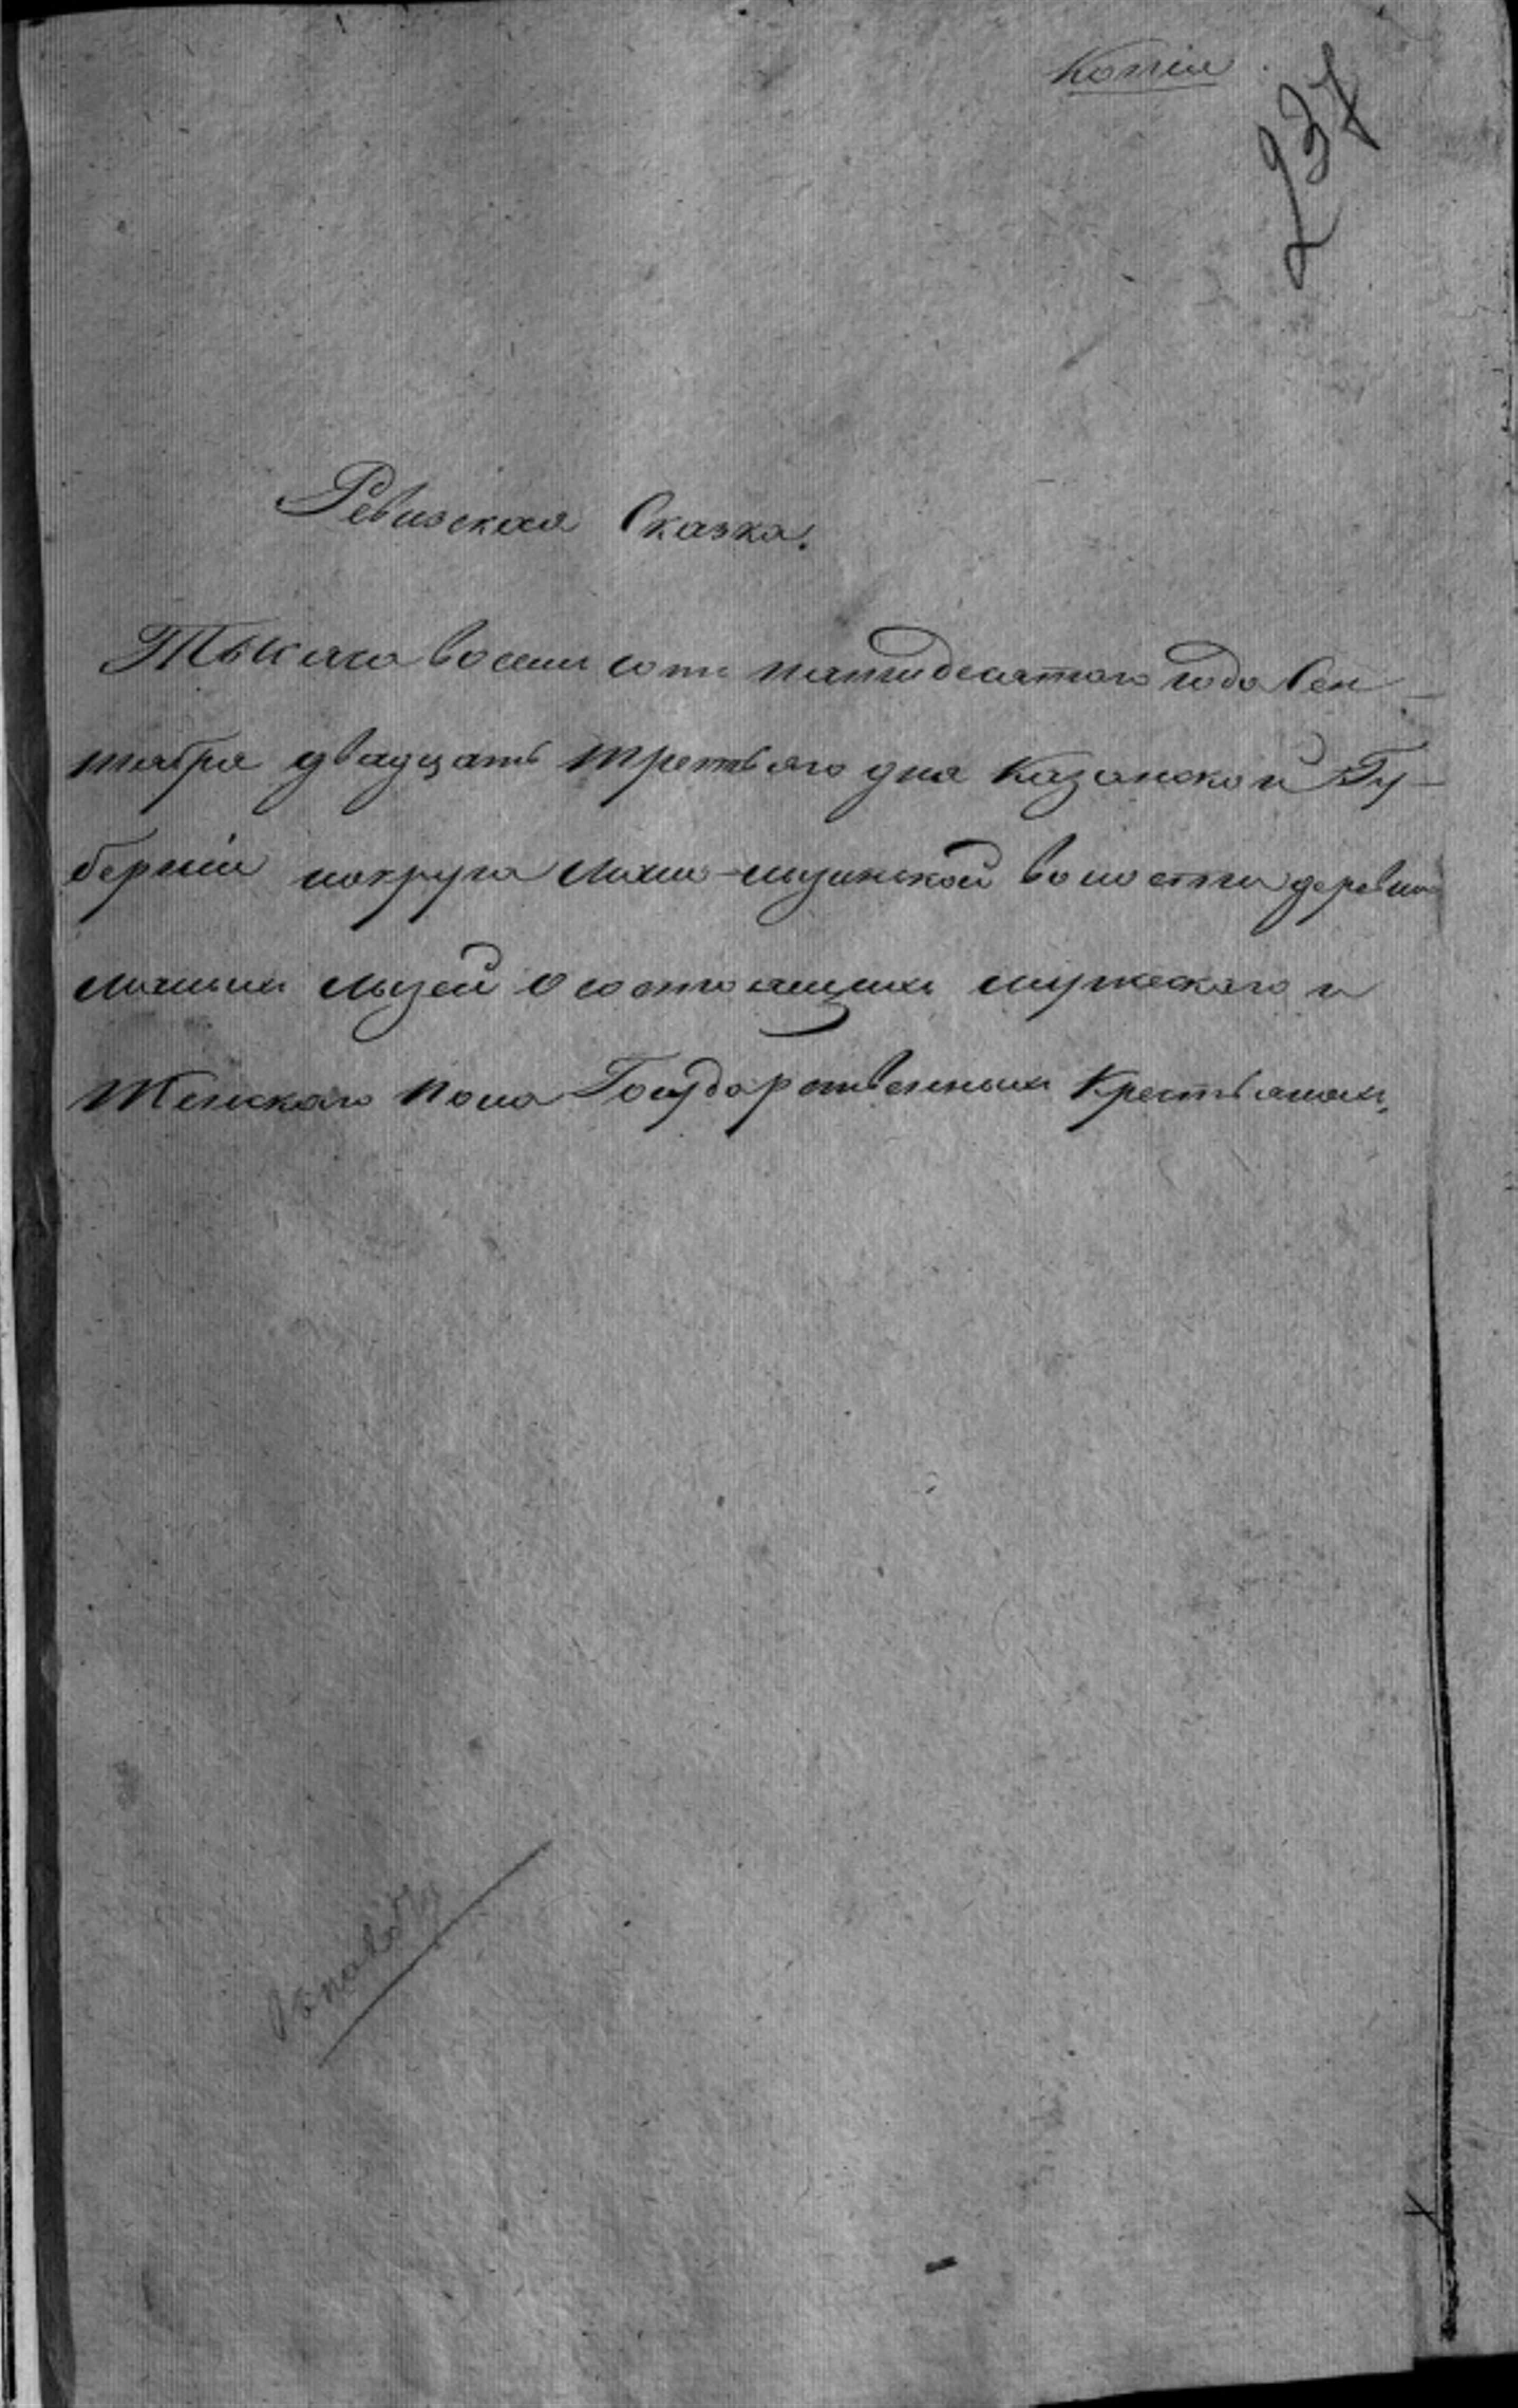 Копія
237
Ревизская Сказка.
Тысяча восемь сотъ пятидесятого года Сен-
тября двадцать третьяго дня Казанской Гу-
берніи округа волости деревни
о состоящихъ мужескаго и
Женскаго пола Государственныхъ Крестьянахъ,